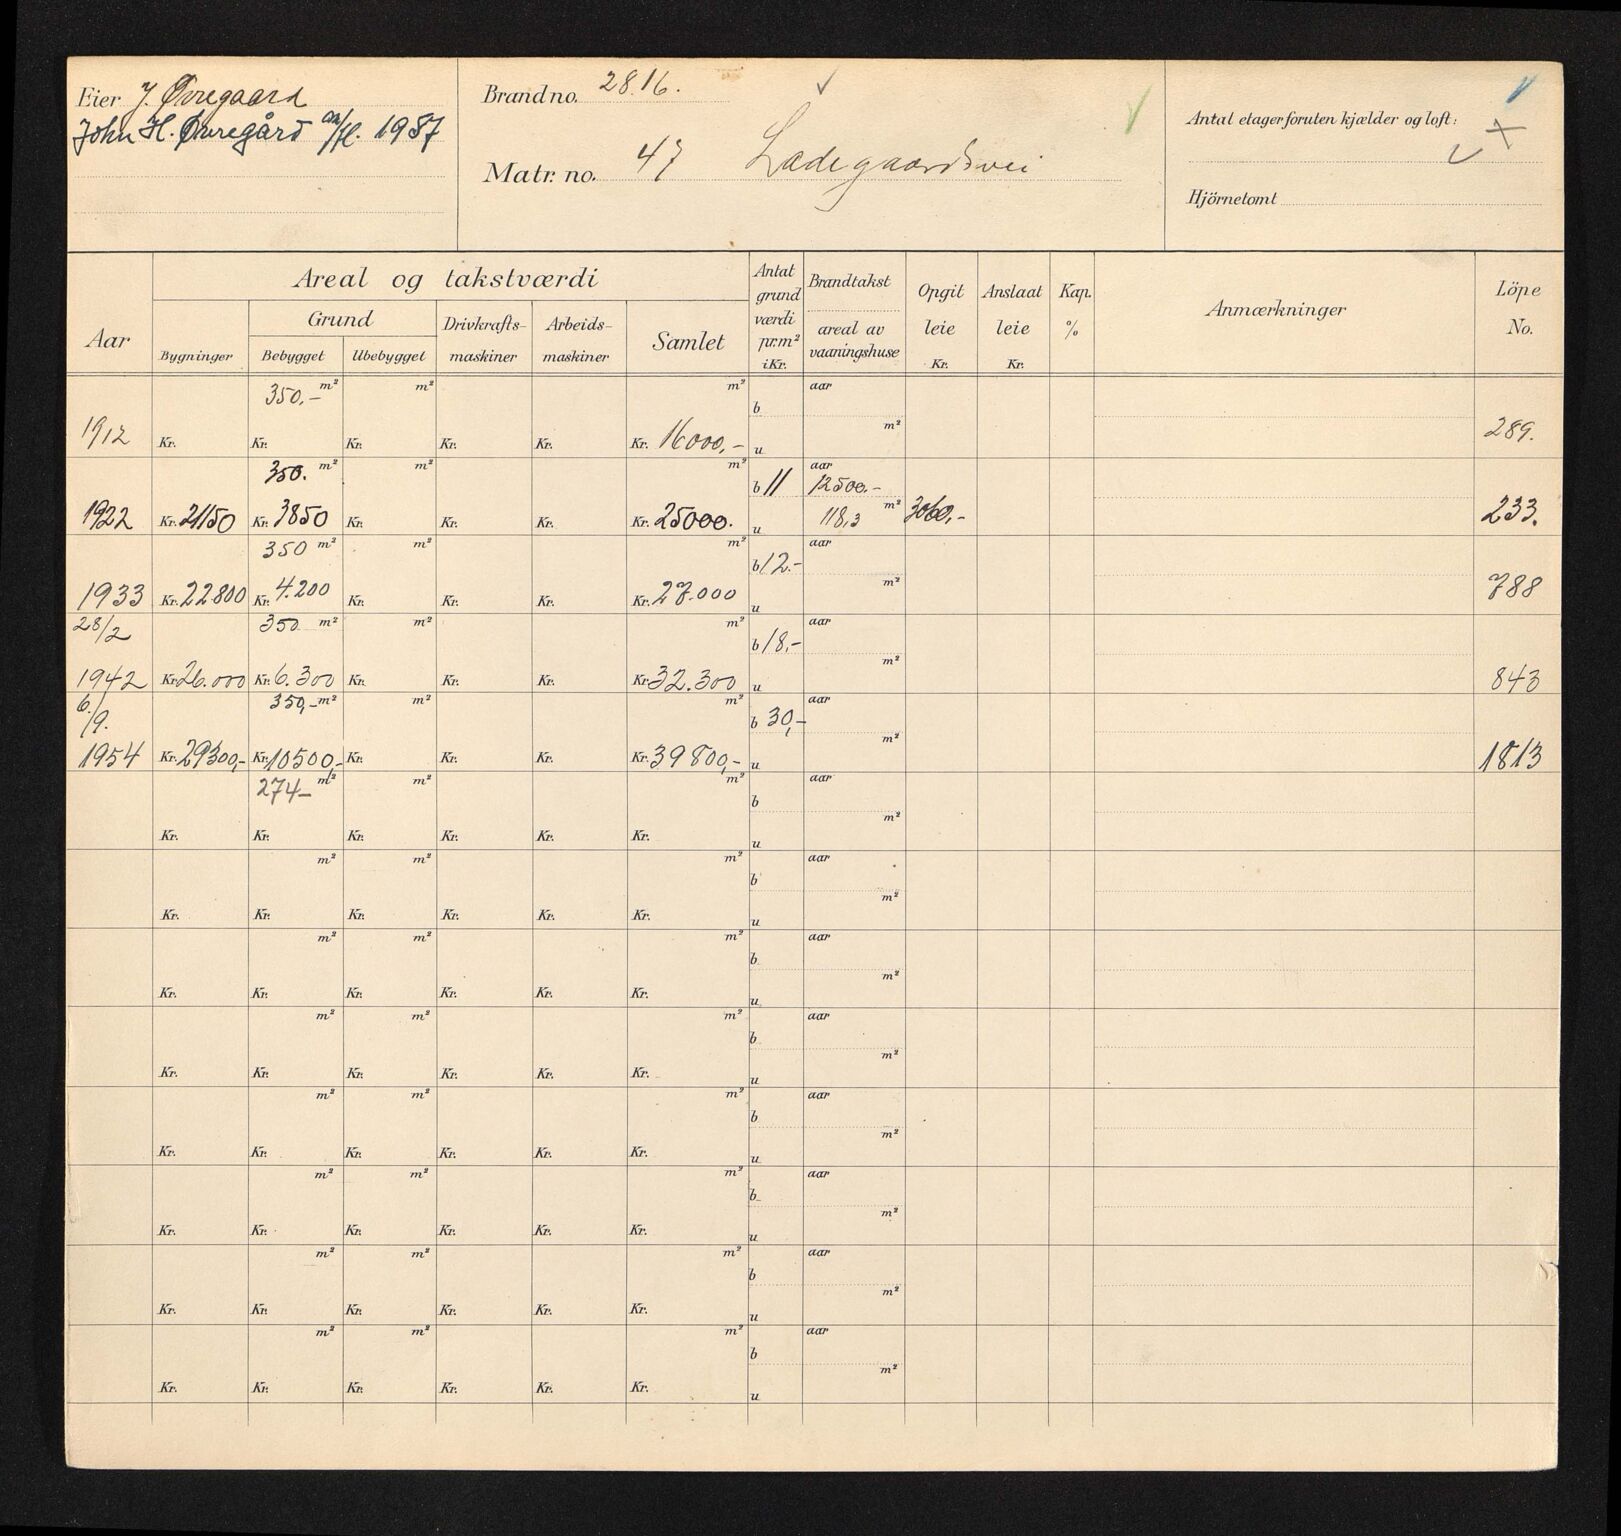 Eier J. Øvregaard
John H. Øvregård 1957
Brandno. 2816.
Matr. no. 47 Ladegaardsvei
Antal etager foruten kjælder og loft:
Hjörnetomt
Aar
Areal og takstværdi
Bygninger
Grund
Bebygget Ubebygget
Drivkrafts-
maskiner
Arbeids-
maskiner
Samlet
Antat
grund
værdi
pr.m²
i Kr.
Brandtakst
areal av
vaaningshuse
Opgit
leie
Kr.
Anslaat
leie
Kr.
Kap.
%
Anmærkninger
Löpe
No.
350.- m² m² m² b aar
m²
1912 Kr. Kr. Kr. Kr. Kr. Kr. 16000,- u 289.
350. m² m² m² b 11 aar 12500.-
1922 Kr. 21150 Kr. 3850 Kr. Kr. Kr. Kr. 25000. u 118,3 m² 3060,- 233.
350 m² m² m² b 12.- aar
m²
1933 Kr. 22800 Kr. 4.200 Kr. Kr. Kr. Kr. 27.000 u 788
28/2 350 m² m² m² b 18,- aar
m²
1942 Kr. 26.000 Kr. 6.300 Kr. Kr. Kr. Kr. 32.300 u 843
6/9. 350,- m² m² m² b 30,- aar
m²
1954 Kr. 29300,- Kr. 10500,- Kr. Kr. Kr. Kr. 39800,- u 1813
274- m² m² m² b aar
m²
Kr. Kr. Kr. Kr. Kr. Kr. u
m² m² m² b aar
m²
Kr. Kr. Kr. Kr. Kr. Kr. u
m² m² m² b aar
m²
Kr. Kr. Kr. Kr. Kr. Kr. u
m² m² m² b aar
m²
Kr. Kr. Kr. Kr. Kr. Kr. u
m² m² m² b aar
m²
Kr. Kr. Kr. Kr. Kr. Kr. u
m² m² m² b aar
m²
Kr. Kr. Kr. Kr. Kr. Kr. u
m² m² m² b aar
m²
Kr. Kr. Kr. Kr. Kr. Kr. u
m² m² m² b aar
m²
Kr. Kr. Kr. Kr. Kr. Kr. u